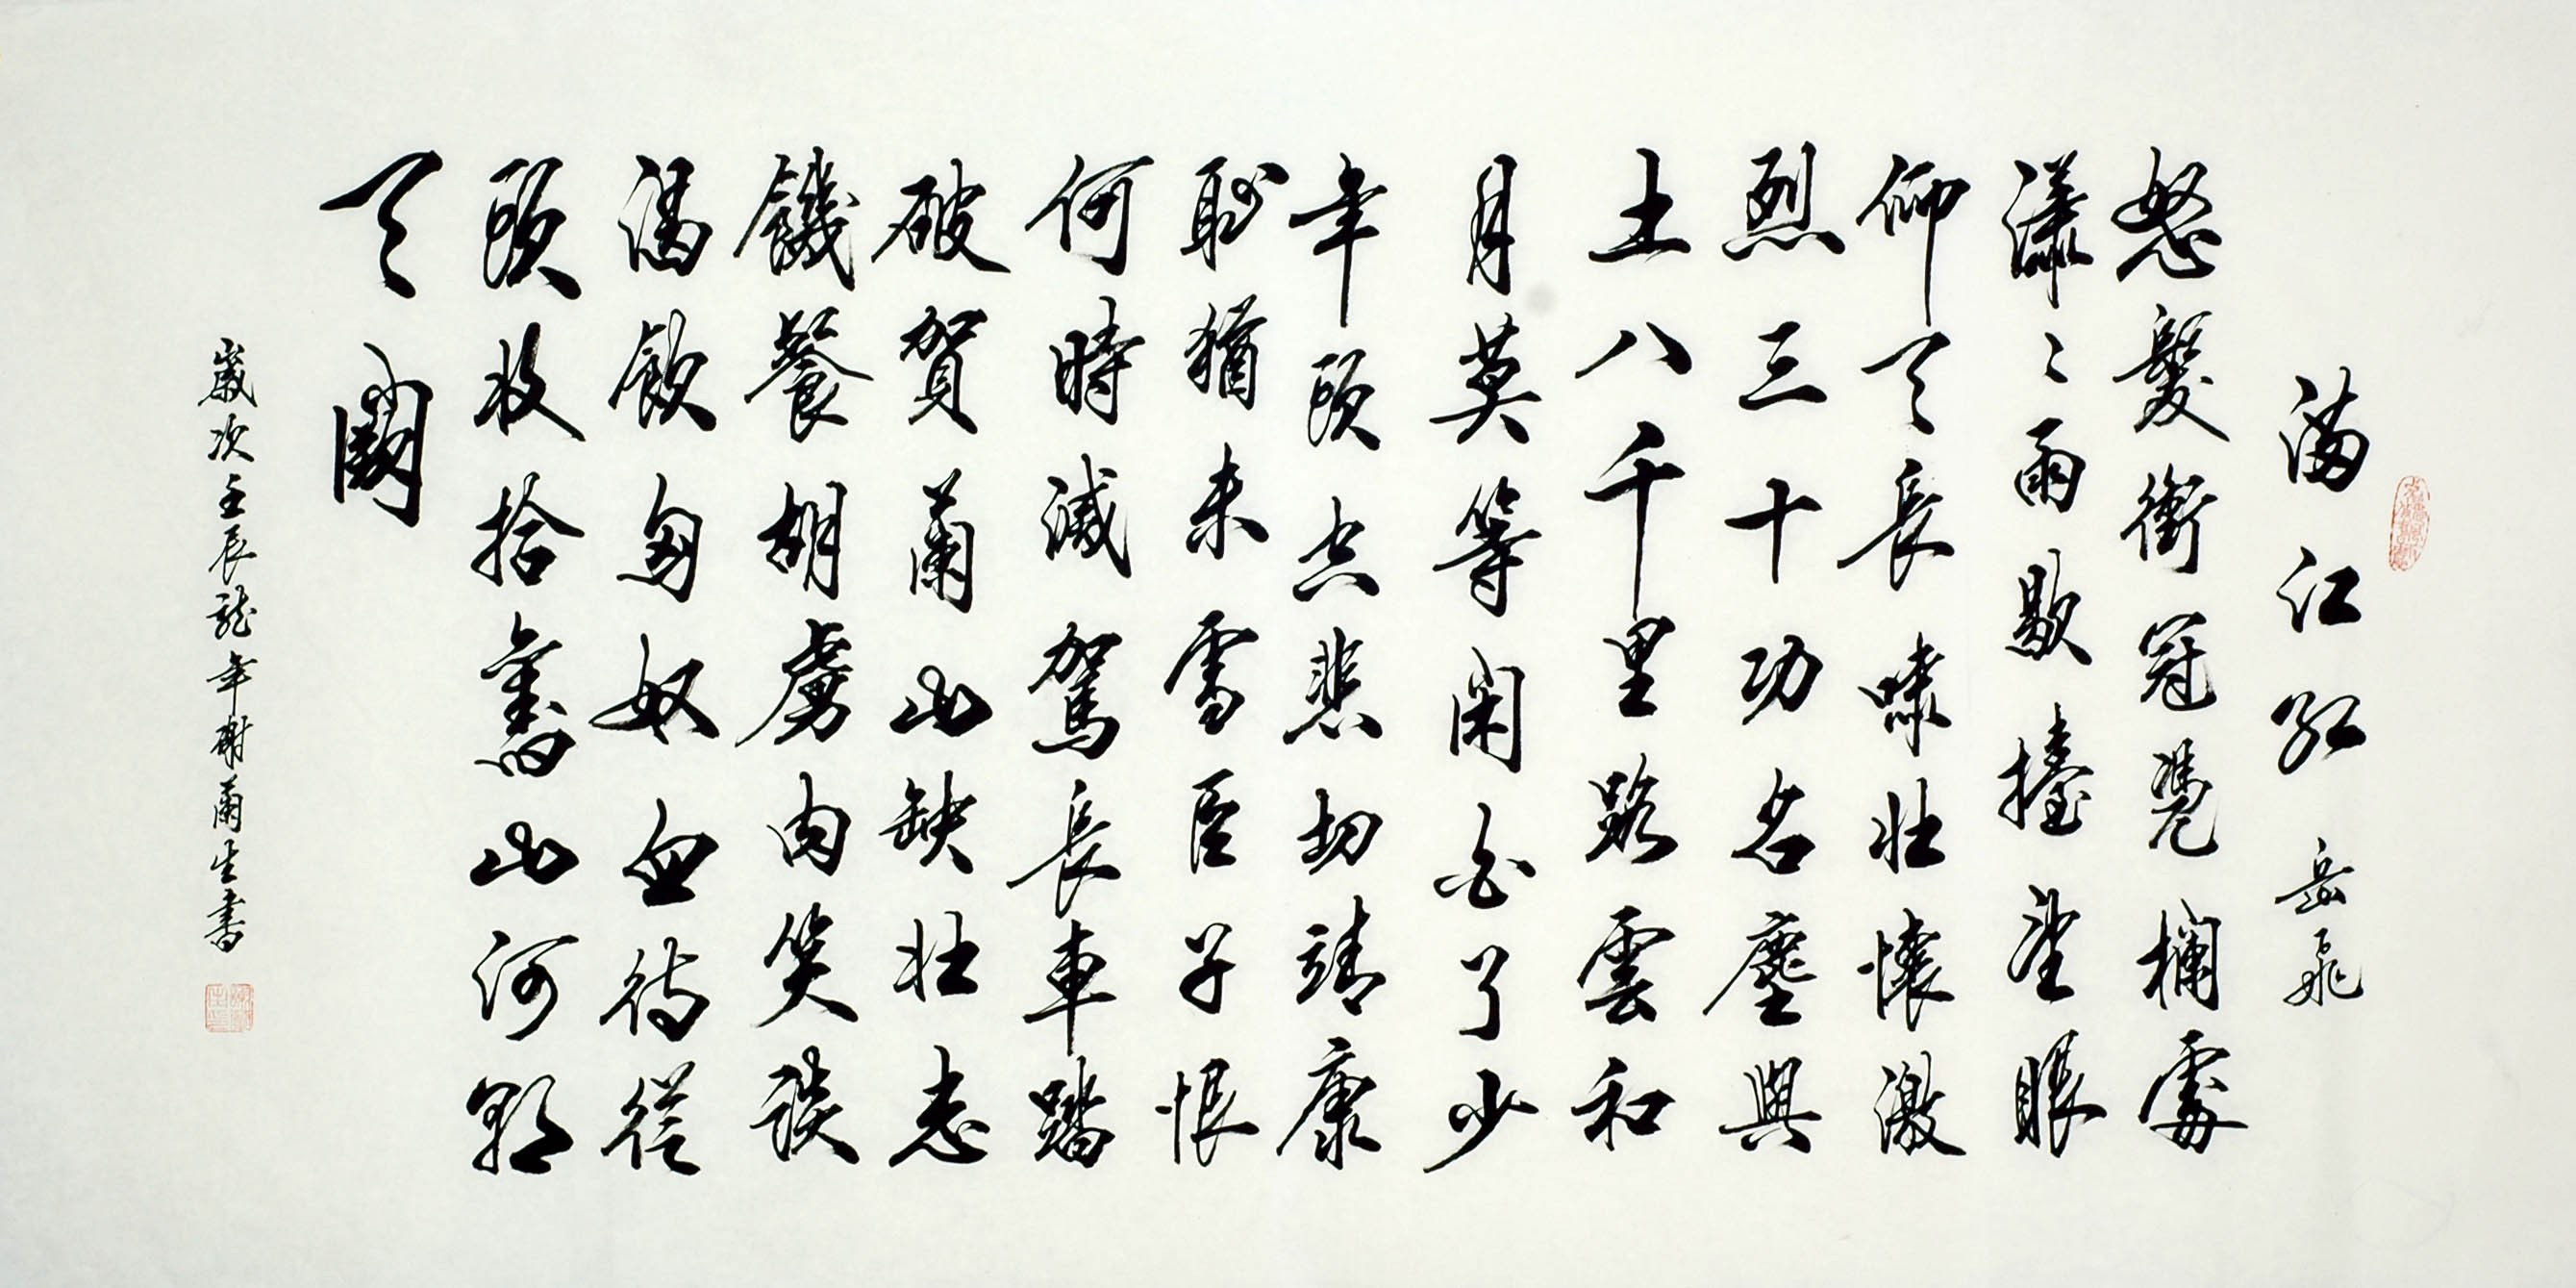 滿江紅 岳飛
怒髮衝冠憑欄處
瀟瀟雨歇擡望眼
仰天長嘯壯懷激
烈三十功名塵與
土八千里路雲和
月莫等閑白了少
年頭空悲切靖康
恥猶未雪臣子恨
何時滅駕長車踏
破賀蘭山缺壯志
饑餐胡虜肉笑談
渴飲匈奴血待從
頭收拾舊山河朝
天闕
歲次壬辰龍年謝蘭生書